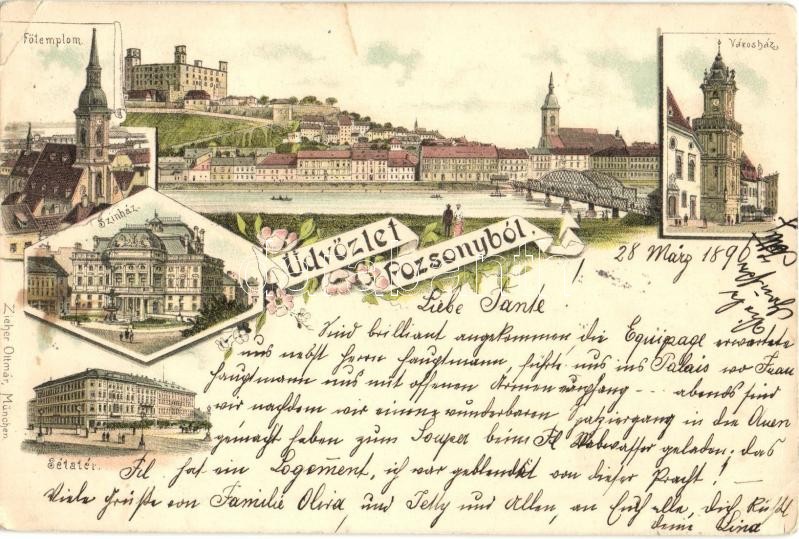 Főtemplom.
Városház.
Színház.
Üdvözlet
Pozsonyból.
28 März 1896
Liebe Tante!
Sind brilliant angekommen die Equipage erwartete
uns nebst Herrn Hauptmann führte uns ins Palais wo Frau
Hauptmann uns mit offenen Armen empfang -- abends sind
wir nachdem wir einen wunderbaren Spaziergang in die Auen
gemacht haben zum Souper beim Fl geladen; das
Sétatér.
Fil hat ein Logement, ich war geblendet von dieser Pracht! —
Viele Grüße von Familie und Tetty und Allen, an Euch alle, dich Küßt
deine Lina
Zieher Ottmár, München.